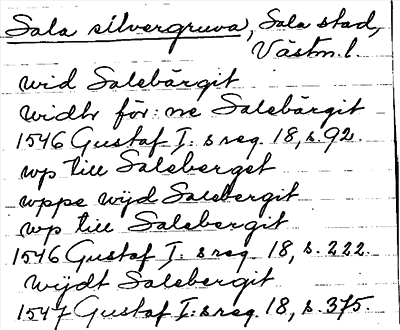 Sala silvergruva, Sala stad,
Västm. l.
wid Salebärgit
widtr för: ne Salebärgit
1546 Gustaf I: s reg. 18, s. 92.
wp till Saleberget
wppe wijd Salebergit
wp till Salebergit
1546 Gustaf I: s reg. 18, s. 222.
wijdt Salebergit
1547 Gustaf I: s reg. 18, s. 375.